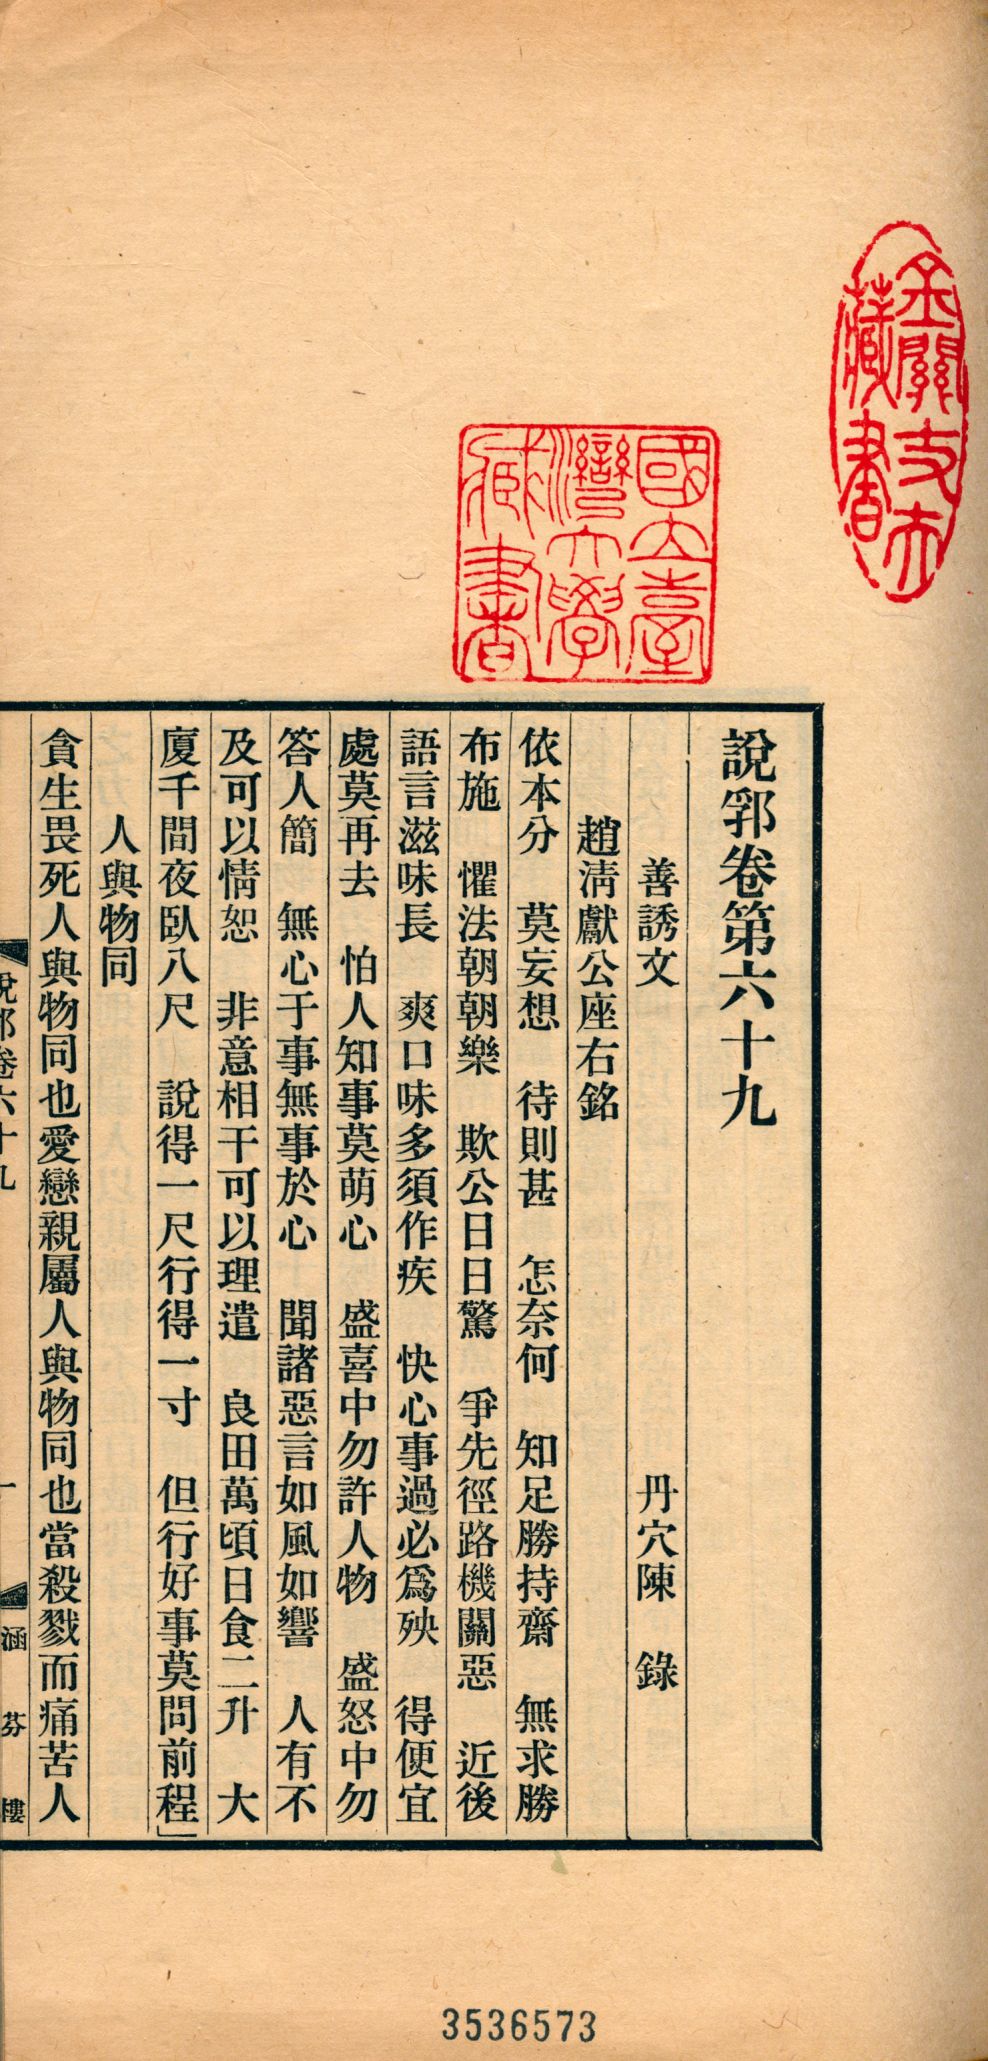 說郛卷第六十九
善誘文　丹穴陳　錄
趙淸獻公座右銘
依本分　莫妄想　待則甚　怎奈何　知足勝持齋　無求勝
布施　懼法朝朝樂　欺公日日驚　爭先徑路機關惡　近後
語言滋味長　爽口味多須作疾　快心事過必爲殃　得便宜
處莫再去　怕人知事莫萌心　盛喜中勿許人物　盛怒中勿
答人簡　無心于事無事於心　聞諸惡言如風如響　人有不
及可以情恕　非意相干可以理遣　良田萬頃日食二升　大
廈千間夜臥八尺　說得一尺行得一寸　但行好事莫問前程」
人與物同
貪生畏死人與物同也愛戀親屬人與物同也當殺戮而痛苦人
說郛卷六十九　一　涵芬樓
國立臺
灣大學
藏書
藏書
3536573